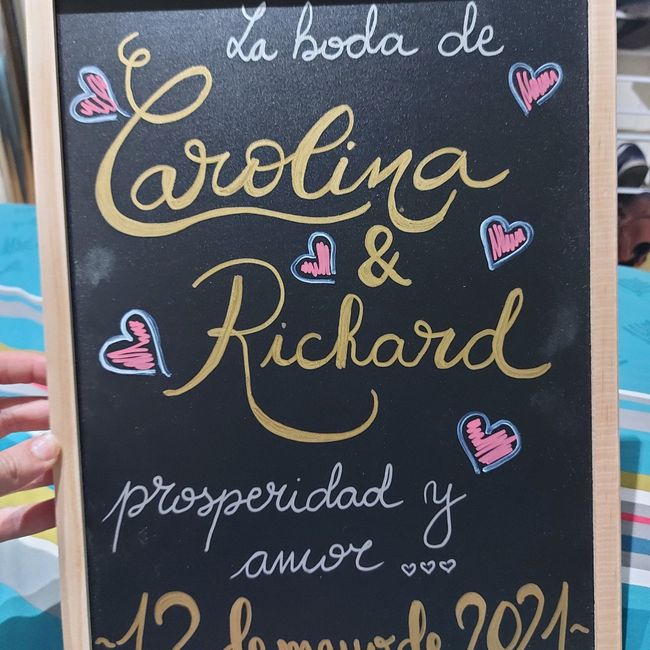 La boda de
Carolina
&
Richard
prosperidad y
amor ...
~12 de mayo de 2021~